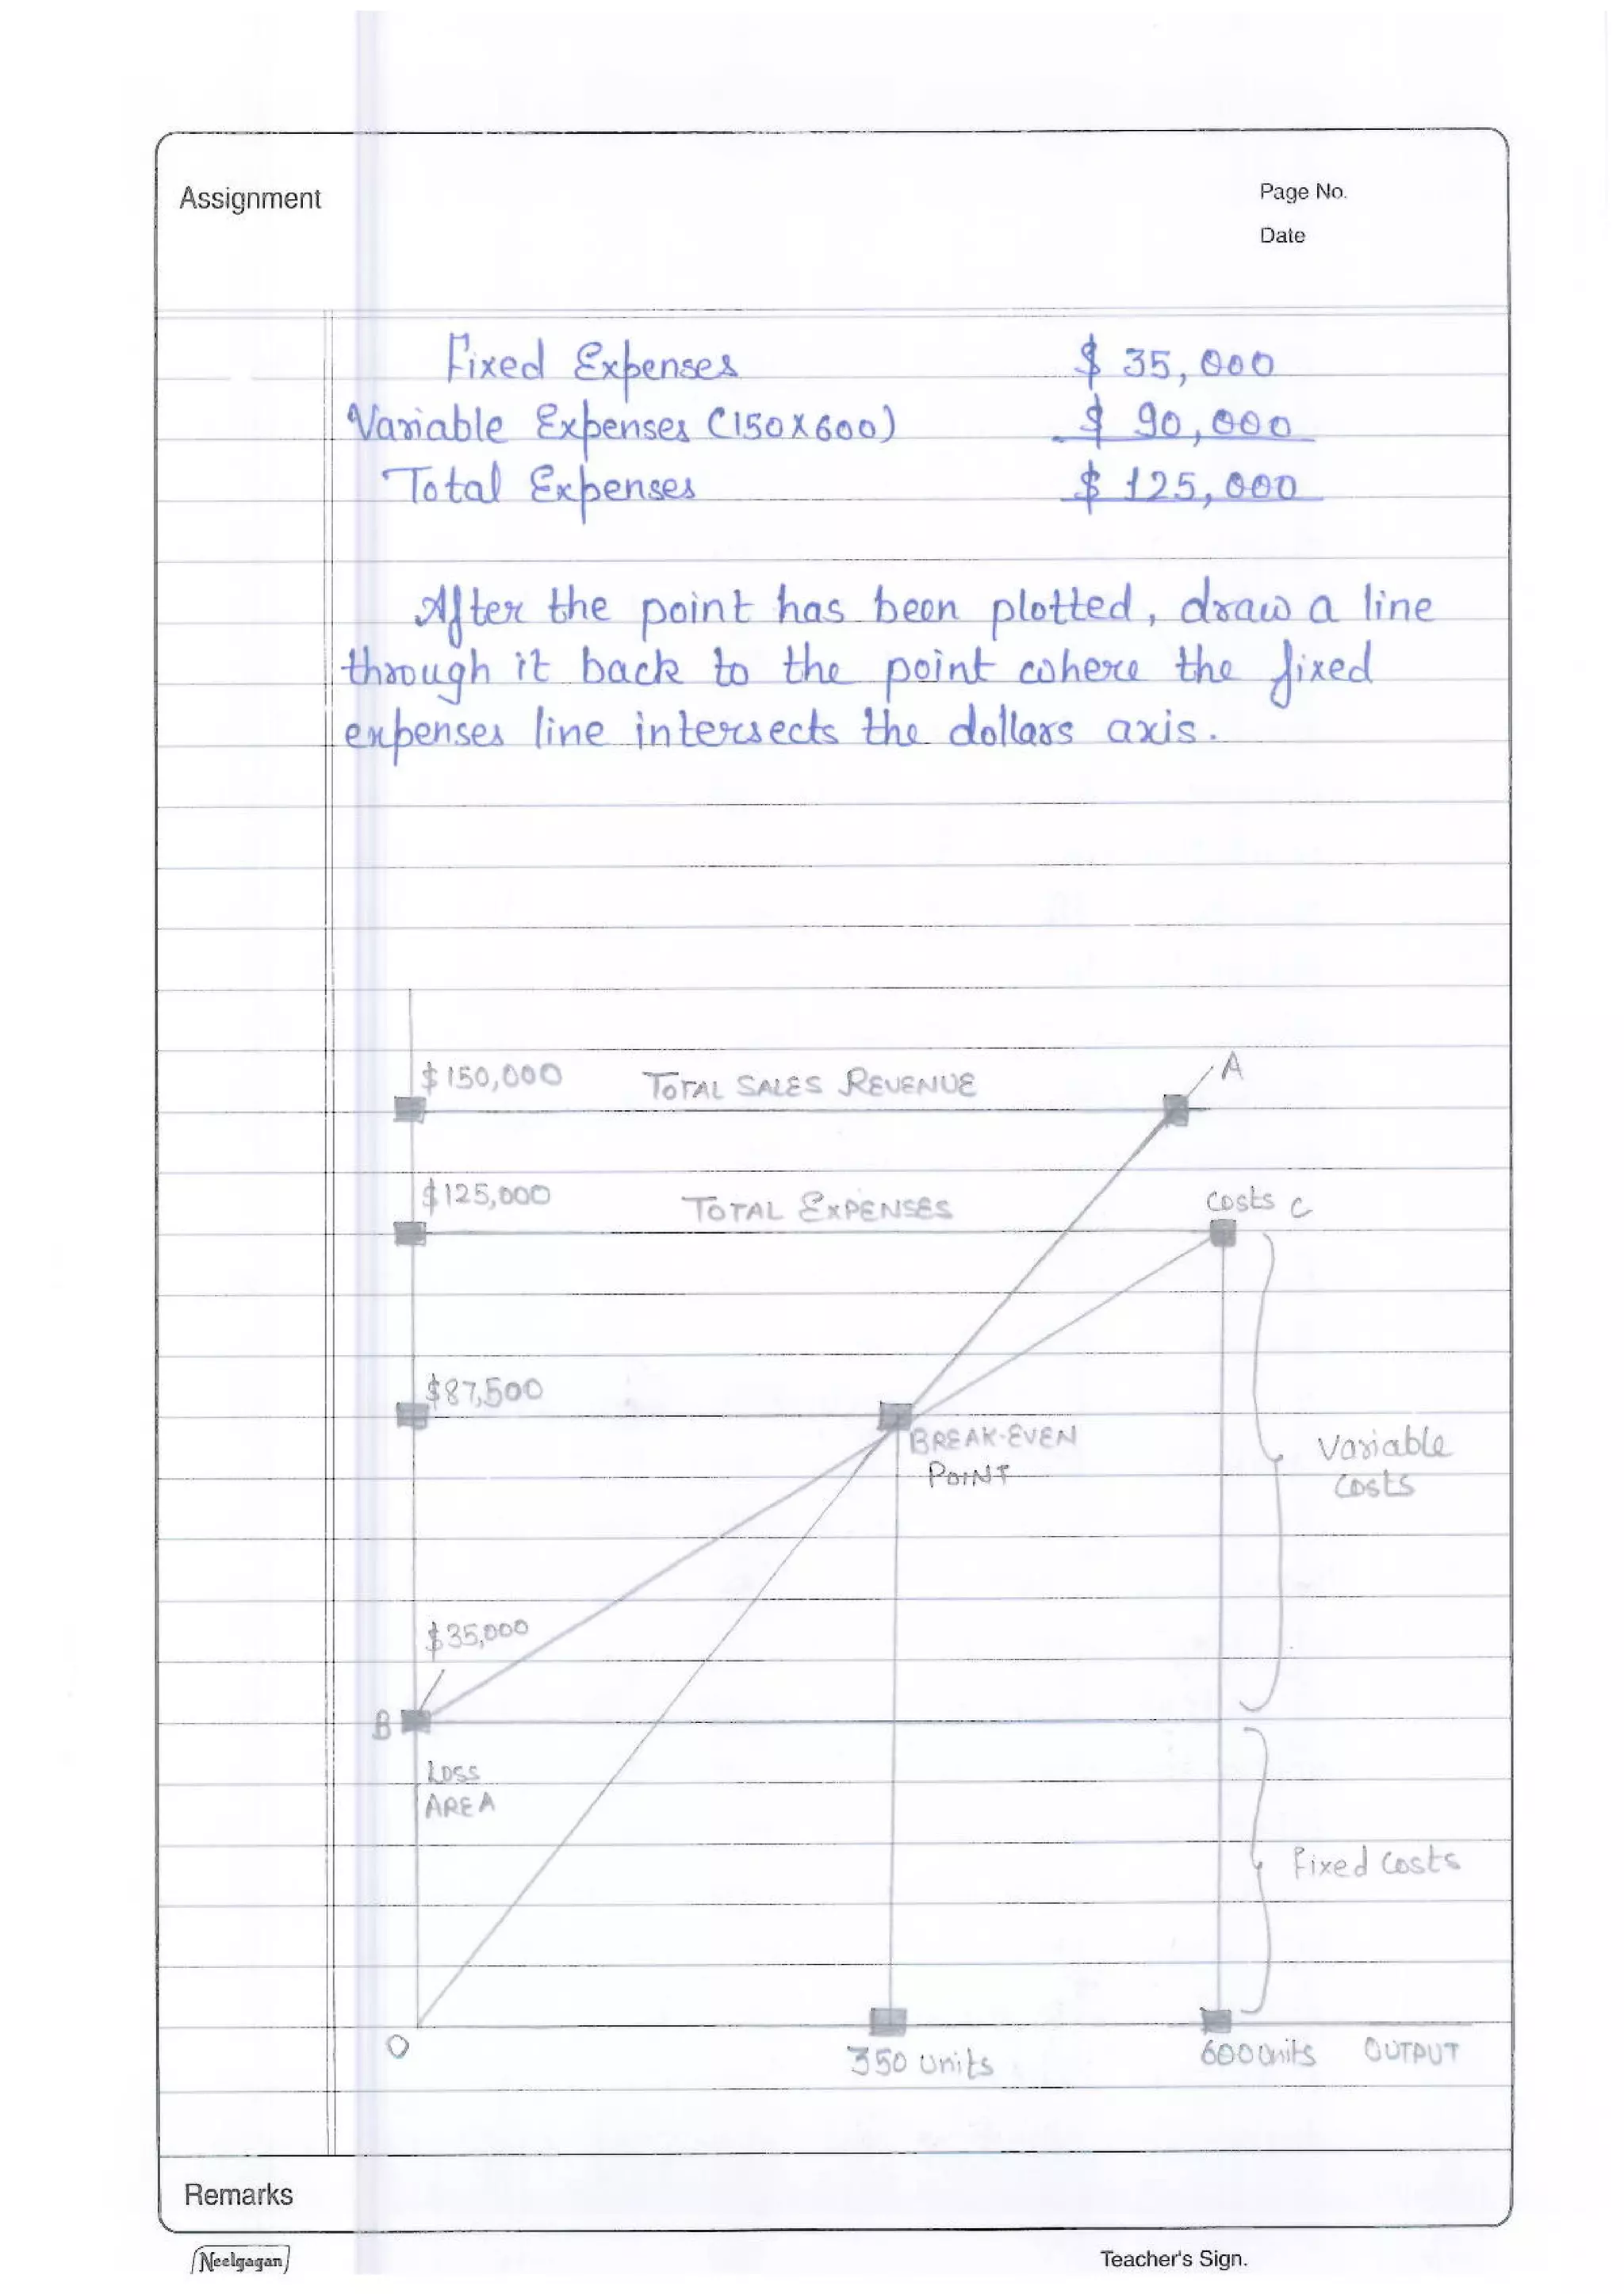 Assignment
Page No.
Date
Fixed Expenses $ 35,000
Variable Expenses (150x600) $ 90,000
Total Expenses $ 125,000
After the point has been plotted, draw a line
through it back to the point where the fixed
expenses line intersects the dollars axis.
$150,000 TOTAL SALES REVENUE A
$125,000 TOTAL EXPENSES Costs C
$87,500
BREAK-EVEN
POINT
Variable
Costs
$35,000
B
LOSS
AREA
Fixed Costs
O
350 Units 600 Units OUTPUT
Remarks
Neelgagan
Teacher's Sign.